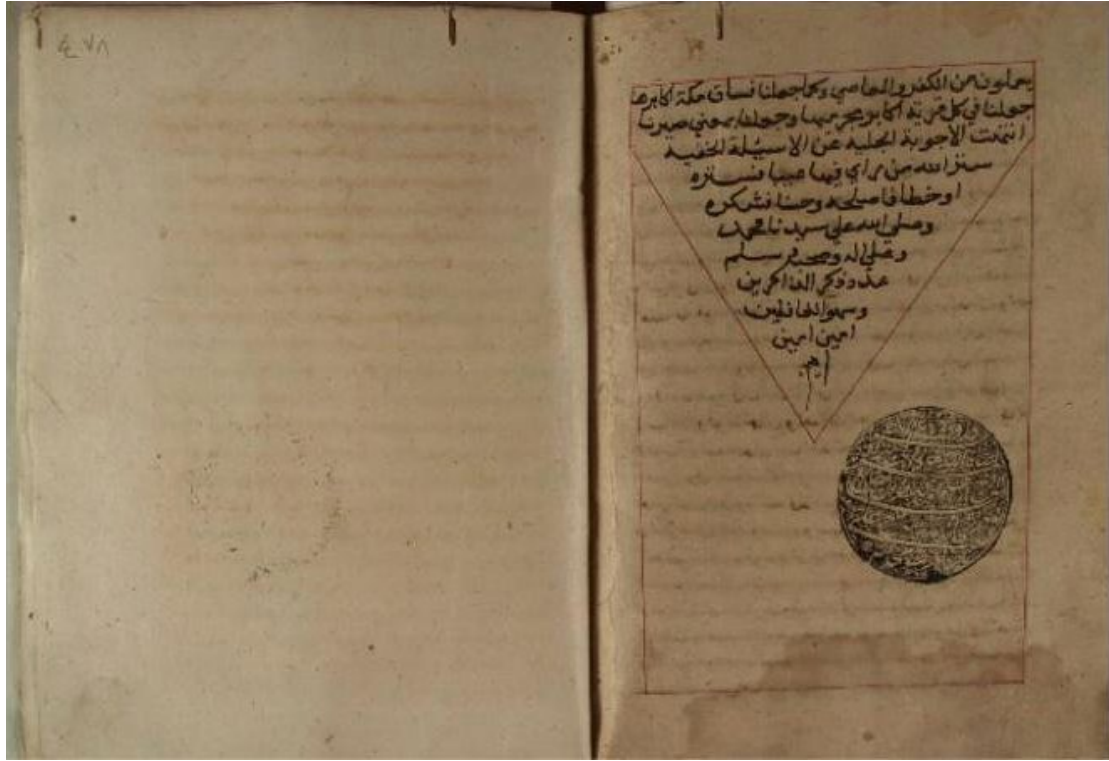 يعملون من الكفر والمعاصي وكما جعلنا فساق مكة اكابرها
جعلنا في كل قرية اكابر مجرميها وجعلنا بمعني صيرنا
انتهت الاجوبة الجليه عن الاسئلة الخفية
ستر الله من راي فيها عيبا فستره
او خطا فاصلحه وحسنا فشكره
وصلي الله علي سيدنا محمد
وعلي اله وصحبه وسلم
عدد ذكر الذاكرين
وسهو الغافلين
امين امين
٤٧٨